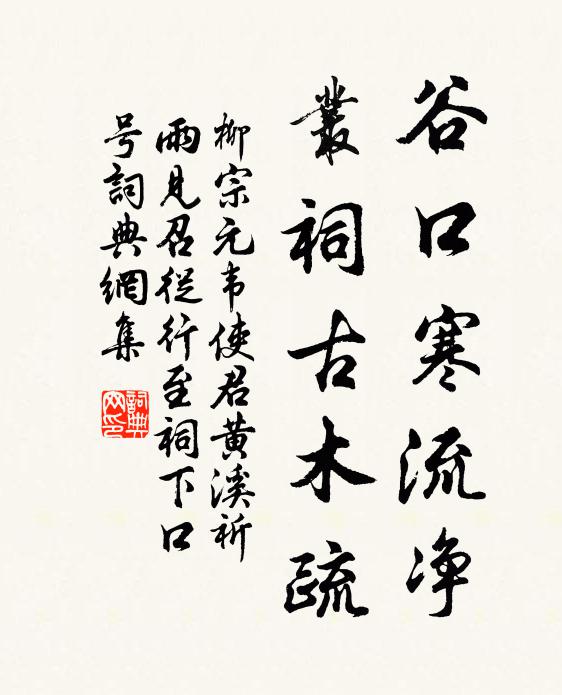 谷口寒流净
叢祠古木疏
柳宗元韦使君黄溪祈
雨見召從行至祠下口
号詞典網集
詞典网印